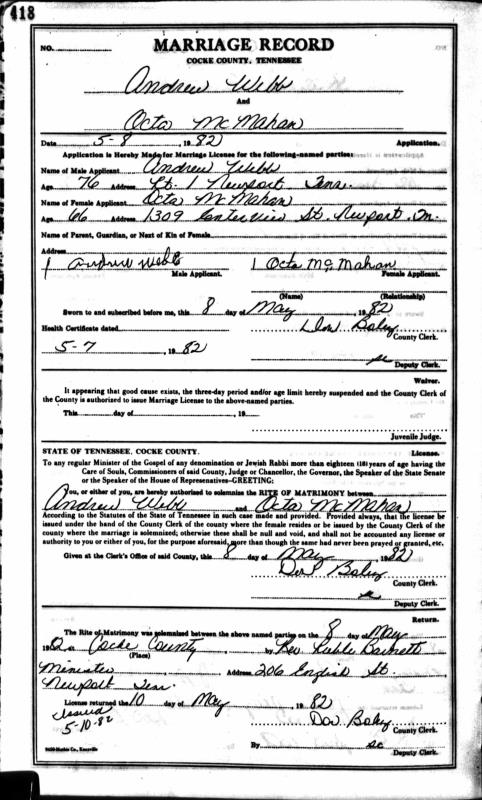 418
NO.
MARRIAGE RECORD
COCKE COUNTY, TENNESSEE
Andrew Webb
And
Octa McMahan
Date 5-8, 1982 Application.
Application is Hereby Made for Marriage License for the following-named parties:
Name of Male Applicant Andrew Webb
Age 76 Address Rt. 1 Newport Tenn.
Name of Female Applicant Octa McMahan
Age 66 Address 1309 Centerview St. Newport, Tn.
Name of Parent, Guardian, or Next of Kin of Female
Address
Andrew Webb Octa McMahan
Male Applicant. Female Applicant.
(Name) (Relationship)
Sworn to and subscribed before me, this 8 day of May, 1982
Health Certificate dated
County Clerk.
5-7, 1982
Deputy Clerk.
Waiver.
It appearing that good cause exists, the three-day period and/or age limit hereby suspended and the County Clerk of
the County is authorized to issue Marriage License to the above-named parties.
This day of, 19
Juvenile Judge.
STATE OF TENNESSEE, COCKE COUNTY. License.
To any regular Minister of the Gospel of any denomination or Jewish Rabbi more than eighteen (18) years of age having the
Care of Souls, Commissioners of said County, Judge or Chancellor, the Governor, the Speaker of the State Senate
or the Speaker of the House of Representatives—GREETING:
You, or either of you, are hereby authorized to solemnize the RITE OF MATRIMONY between
Andrew Webb and Octa McMahan
According to the Statutes of the State of Tennessee in such case made and provided. Provided always, that the license be
issued under the hand of the County Clerk of the county where the female resides or be issued by the County Clerk of the
county where the marriage is solemnized; otherwise these shall be null and void, and shall not be accounted any license or
authority to you or either of you, for the purpose aforesaid, more than though the same had never been prayed or granted, etc.
Given at the Clerk's Office of said County, this 8 day of May, 1982
County Clerk.
Deputy Clerk.
Return.
The Rite of Matrimony was solemnized between the above named parties on the 8 day of May
1982 at Cocke County by Rev
(Place)
Minister Address 206 English St
Newport Tenn.
License returned the 10 day of May, 1982
Issued
5-10-82
County Clerk.
By
Deputy Clerk.